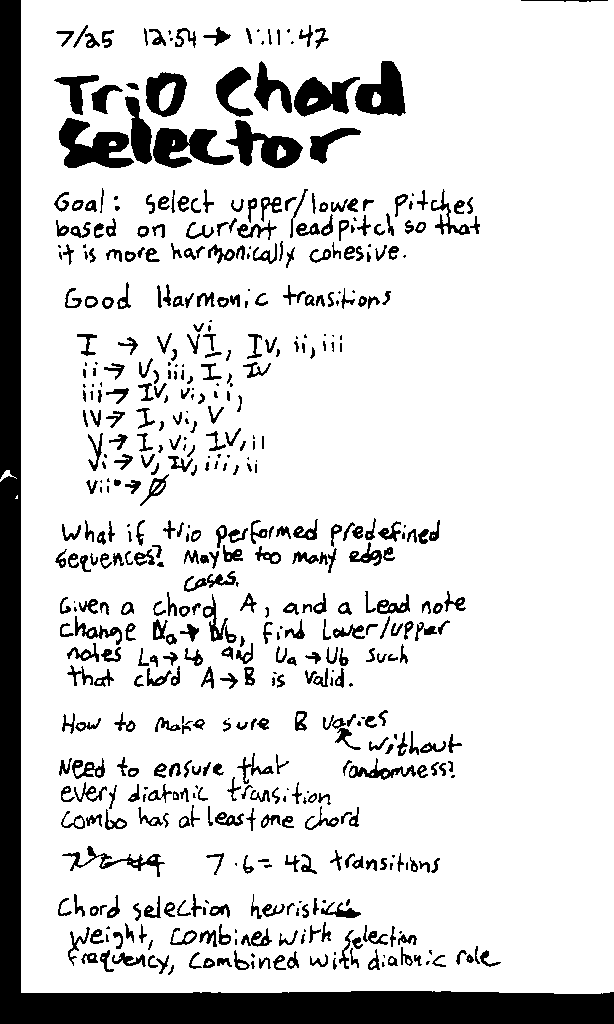 7/25 12:54 → 1:11:47
Trio Chord
Selector
Goal: select upper/lower pitches
based on current lead pitch so that
it is more harmonically cohesive.
Good Harmonic transitions
vi
I → V, VI, IV, ii, iii
ii → V, iii, I, IV
iii → IV, vi, ii,
IV → I, vi, V
V → I, vi, IV, ii
vi → V, IV, iii, ii
vii° → Ø
What if trio performed predefined
sequences? Maybe too many edge
cases.
Given a chord A, and a Lead note
change Na → Nb, find Lower/upper
notes La → Lb and Ua → Ub such
that chord A → B is valid.
How to make sure B varies
without
Need to ensure that randomness?
every diatonic transition
combo has at least one chord
7²=49 7·6=42 transitions
Chord selection heuristics
weight, combined with selection
frequency, combined with diatonic role